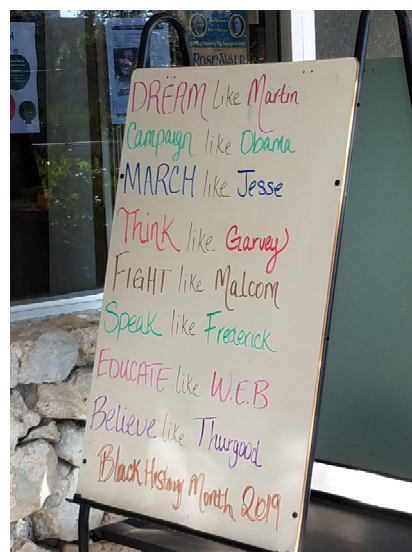 ROSENWALD
DREAM like Martin
Campaign like Obama
MARCH like Jesse
Think like Garvey
FIGHT like Malcom
Speak like Frederick
EDUCATE like W.E.B
Believe like Thurgood
Black History Month 2019